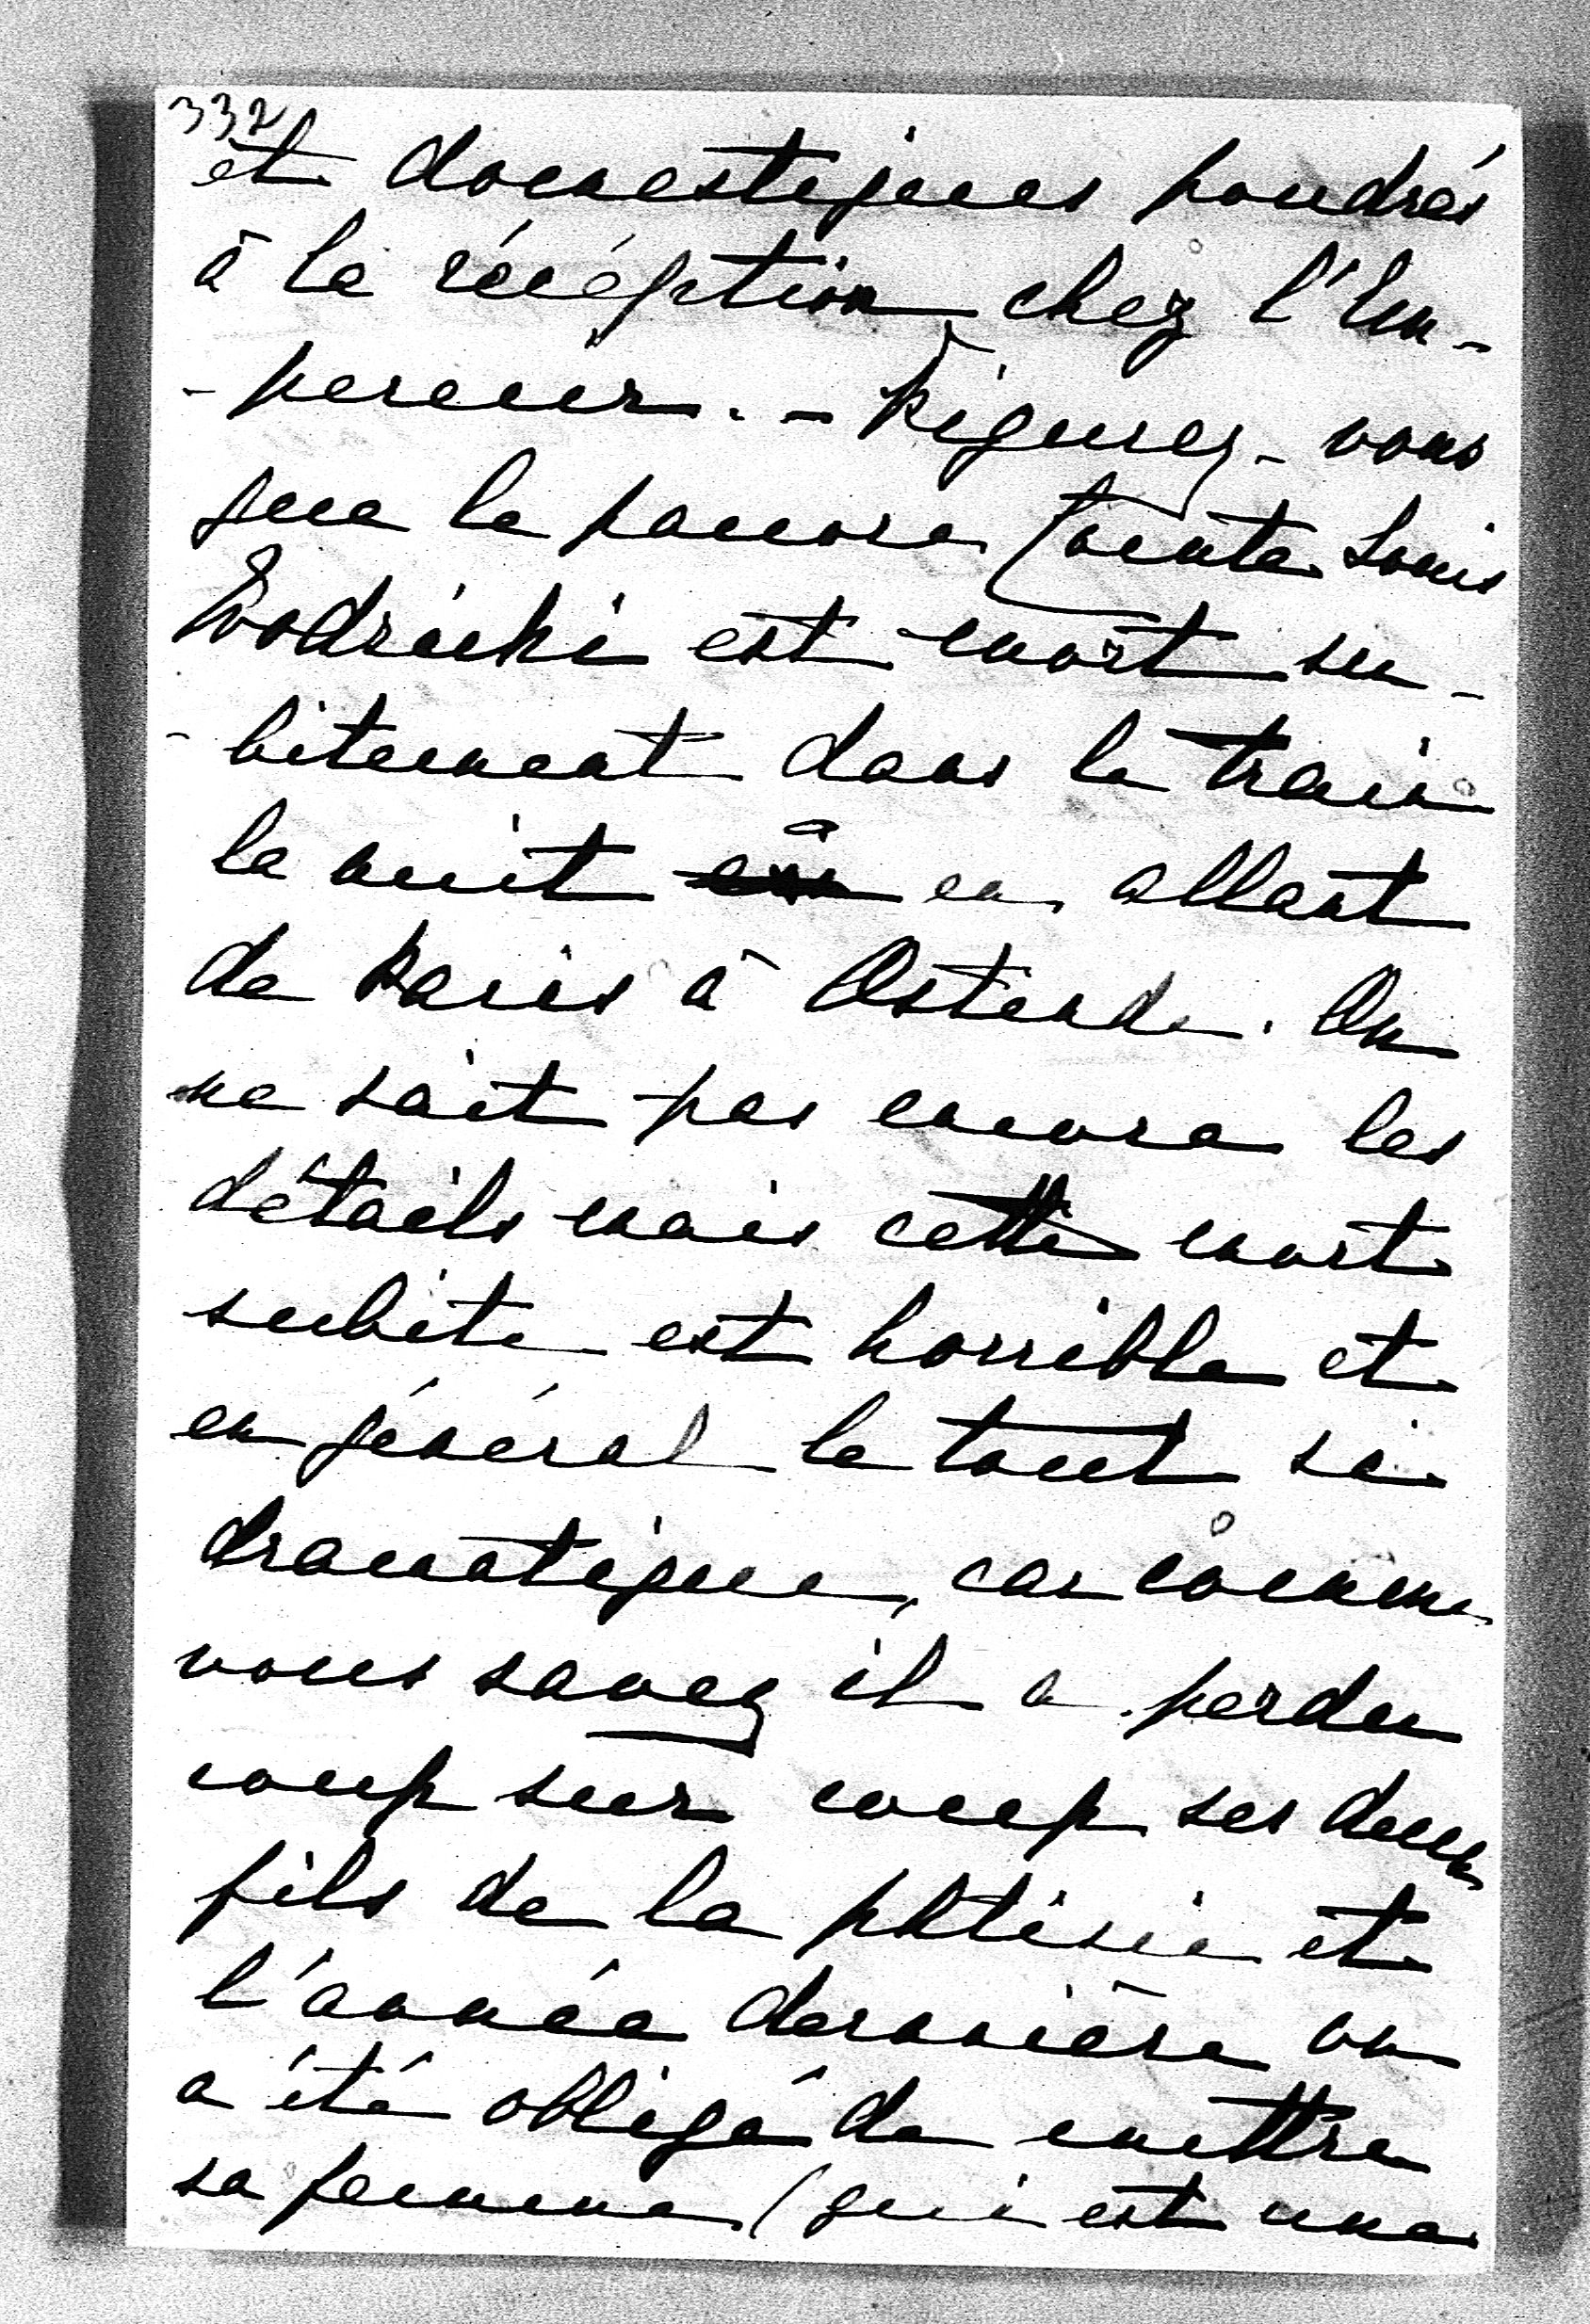 332
et domestiques poudrés
à la récéption chez l'Em-
-pereur. - Figurez-vous
que le pauvre Comte Louis
Wodzicki est mort su-
-bitement dans le train
la nuit en allant
de Paris à Ostende. On
ne sait pas encore les
détails mais cette mort
subite est horrible et
en général le tout si
dramatique, car comme
vous savez il a perdu
coup sur coup ses deux
fils de la phtisie et
l'année dernière on
a été obligé de mettre
sa femme (qui est une